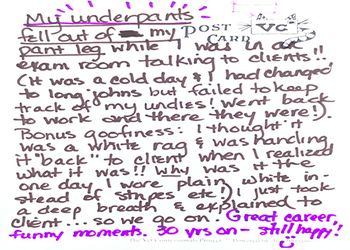 My underpants
fell out of my
pant leg while I was in an
POST
CARD
VC
exam room talking to clients!!
(It was a cold day & I had changed
to long johns but failed to keep
track of my undies! Went back
to work and there they were!).
Bonus goofiness: I thought it
was a white rag & was handing
it "back" to client when I realized
what it was!! Why was it the
one day I wore plain white in-
stead of stripes etc!) I just took
a deep breath & explained to
client... so we go on. Great career,
funny moments. 30 yrs on- still happy!